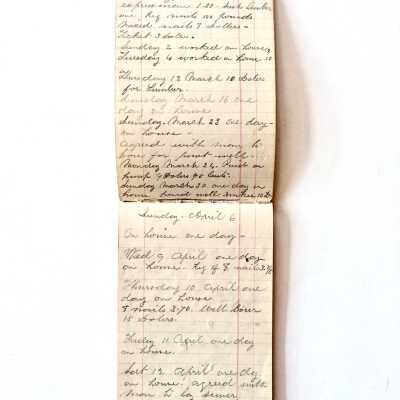 express man 1.20
one Keg nails 100 pounds
Mixed nails 7 Dollers-
Ticket 3 Doler-
Sunday 2 worked on house,
Tuesday 4 worked on house 10
Thursday 13 March 10 Dolers
for Lumber.
Sunday March 16 one
day on house
Sunday. March 23 one day-
on house-
agreed with man to
bore for well-
Monday March 24. Paid on
pump 9 Dolers 90
Sunday March 30 one day on
house bored well
Sunday. April 6
On house one day-
Wed 9 April one day
on house. Kg of 8 nails
Thursday 10 April one
day on house
nails 2.70. Well Borer
15 Dolers.
Friday 11 April one day
on house.
Sat 12 April one day
on house. agreed with
man to lay sewer